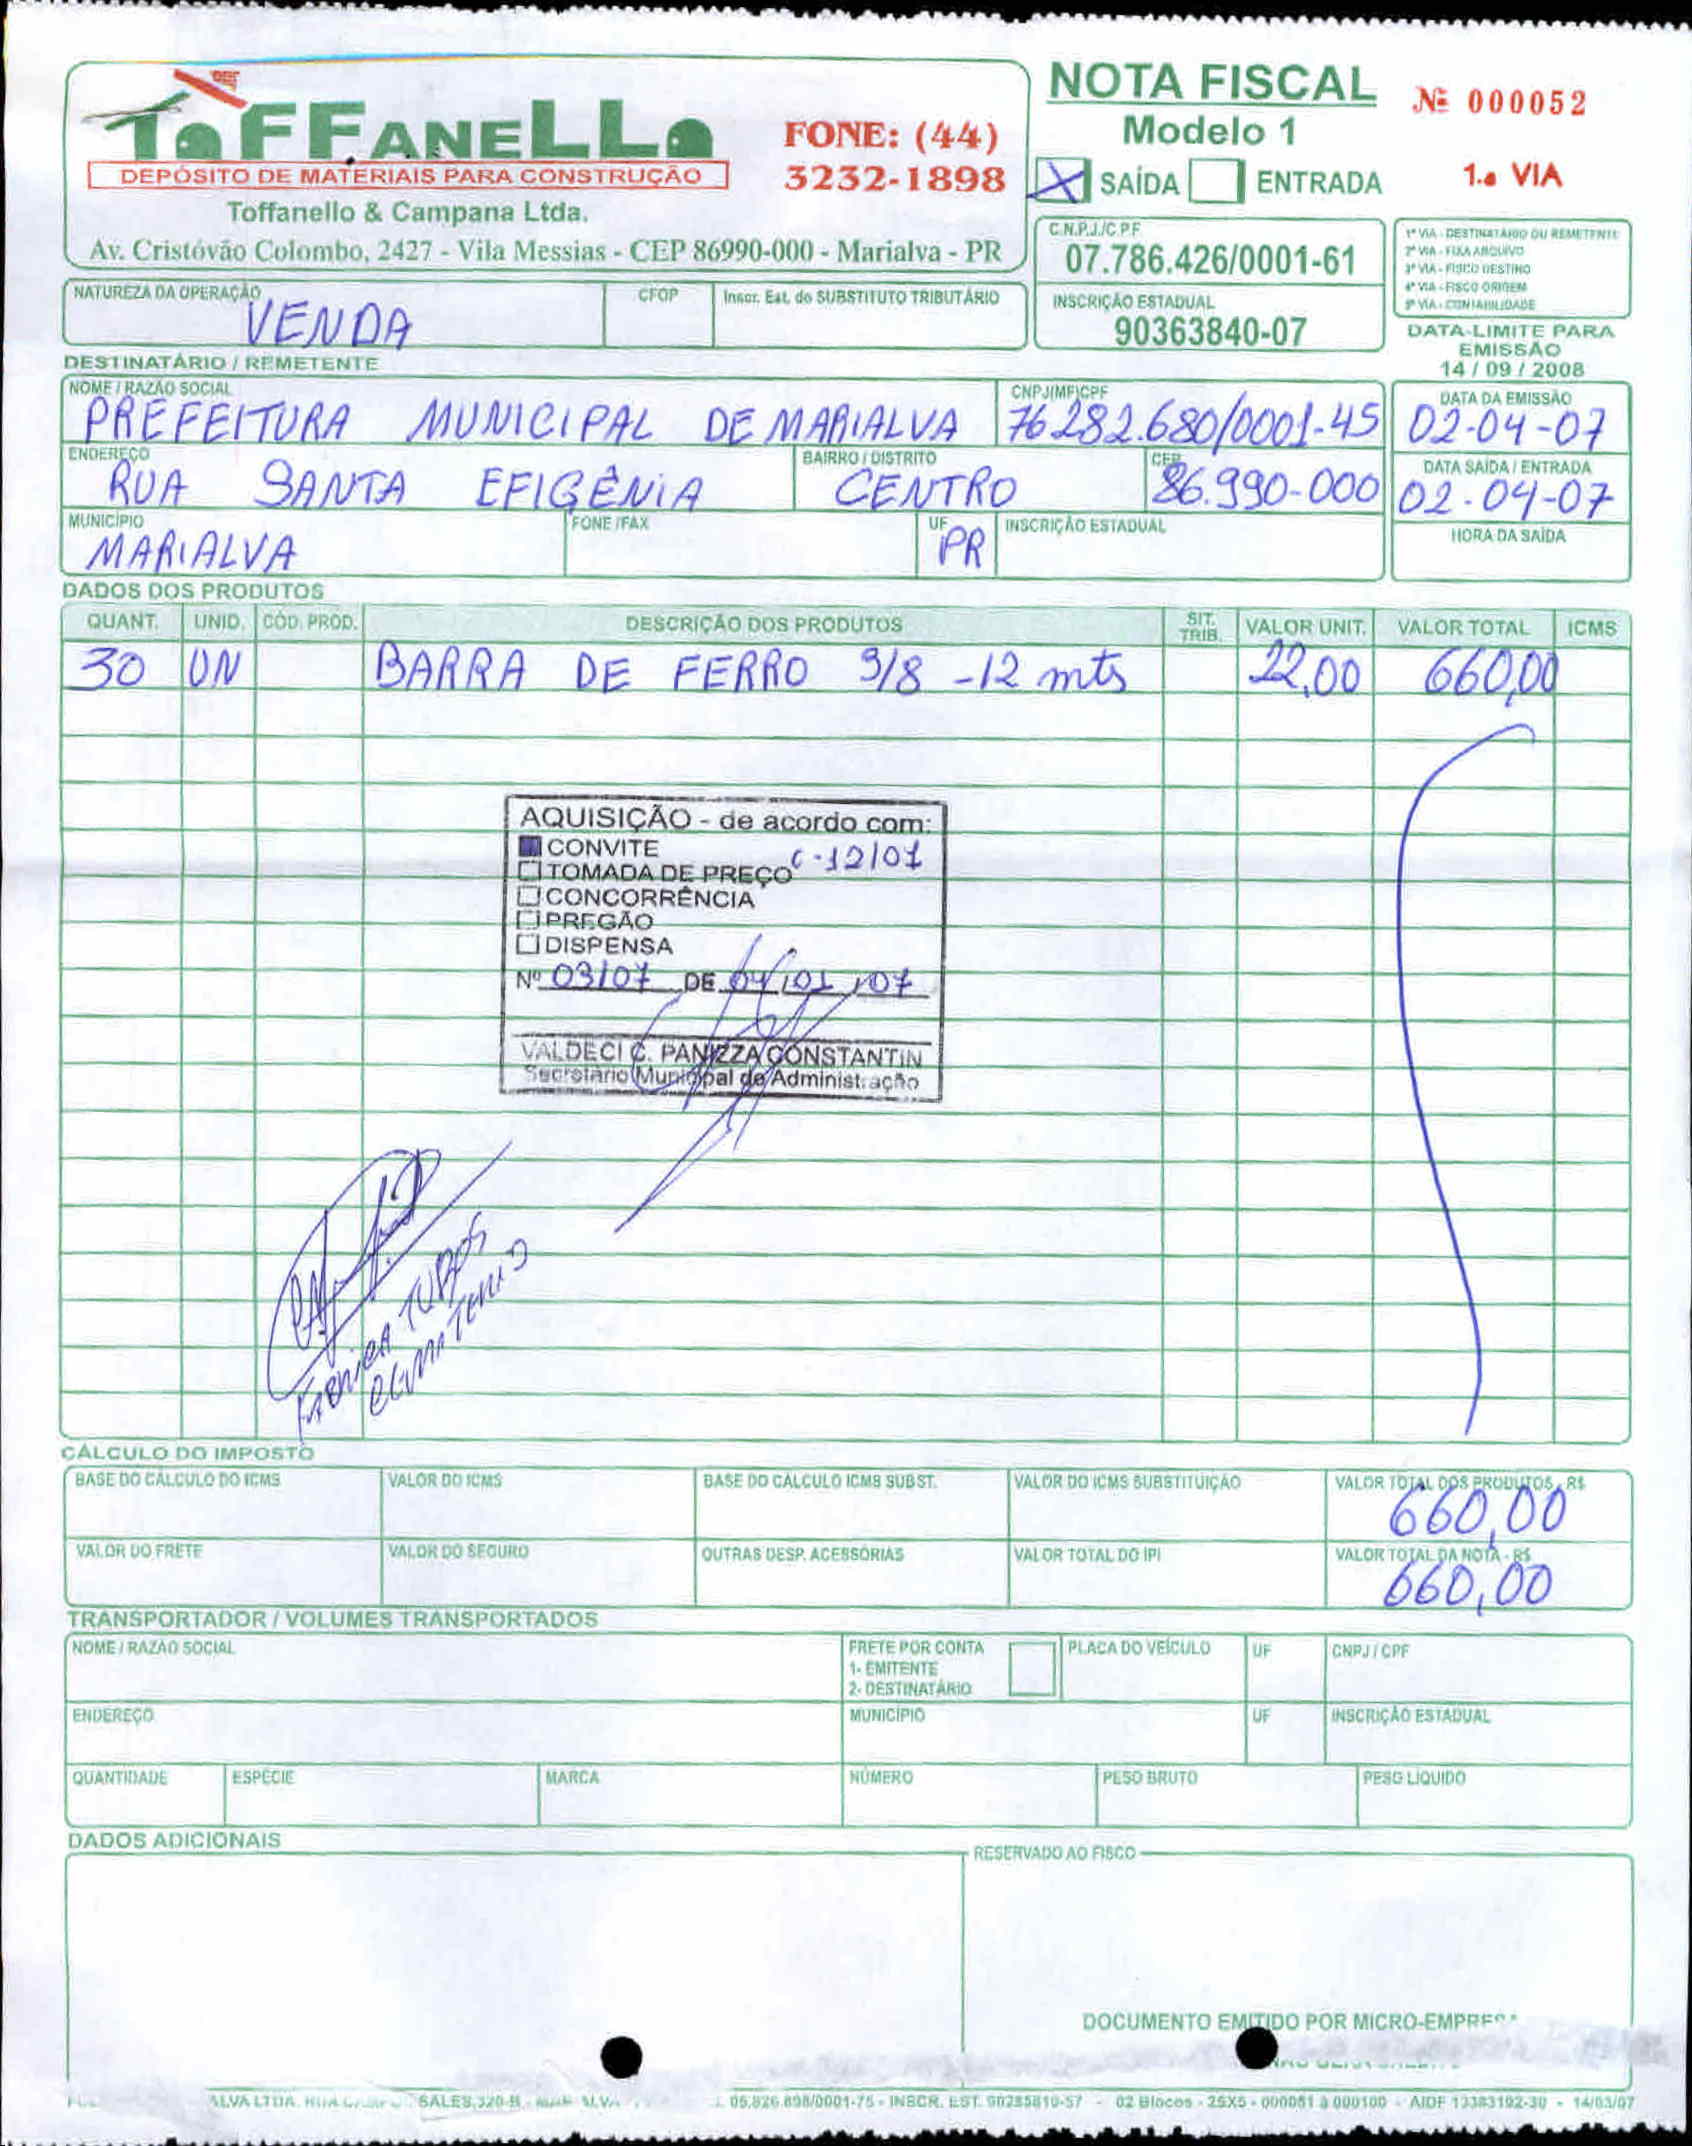 ToFFANELLO
DEPÓSITO DE MATERIAIS PARA CONSTRUÇÃO
Toffanello & Campana Ltda.
Av. Cristóvão Colombo, 2427 - Vila Messias - CEP 86990-000 - Marialva - PR
FONE: (44)
3232-1898
NOTA FISCAL
Nº 000052
Modelo 1
X SAÍDA ENTRADA
1.ª VIA
C.N.P.J./C.P.F
07.786.426/0001-61
INSCRIÇÃO ESTADUAL
90363840-07
1ª VIA - DESTINATÁRIO OU REMETENTE
2ª VIA - FIXA ARQUIVO
3ª VIA - FISCO DESTINO
4ª VIA - FISCO ORIGEM
5ª VIA - CONTABILIDADE
DATA-LIMITE PARA
EMISSÃO
14 / 09 / 2008
NATUREZA DA OPERAÇÃO
VENDA
CFOP
Inscr. Est. do SUBSTITUTO TRIBUTÁRIO
DESTINATÁRIO / REMETENTE
NOME / RAZÃO SOCIAL
PREFEITURA MUNICIPAL DE MARIALVA
CNPJ/MF/CPF
76 282.680/0001-45
DATA DA EMISSÃO
02-04-07
ENDEREÇO
RUA SANTA EFIGÊNIA
BAIRRO / DISTRITO
CENTRO
CEP
86.990-000
DATA SAÍDA / ENTRADA
02-04-07
MUNICÍPIO
MARIALVA
FONE /FAX
UF
PR
INSCRIÇÃO ESTADUAL
HORA DA SAÍDA
DADOS DOS PRODUTOS
QUANT. UNID. CÓD. PROD. DESCRIÇÃO DOS PRODUTOS SIT. TRIB. VALOR UNIT. VALOR TOTAL ICMS
30 UN BARRA DE FERRO 3/8 - 12 mts 22,00 660,00
AQUISIÇÃO - de acordo com:
CONVITE
C-12/07
TOMADA DE PREÇO
CONCORRÊNCIA
PREGÃO
DISPENSA
Nº 03/07 DE 04/01/07
VALDECI C. PANIZZA CONSTANTIN
Secretário Municipal de Administração
FABRICA TUBOS
CÁLCULO DO IMPOSTO
BASE DO CÁLCULO DO ICMS
VALOR DO ICMS
BASE DO CÁLCULO ICMS SUBST.
VALOR DO ICMS SUBSTITUIÇÃO
VALOR TOTAL DOS PRODUTOS - R$
660,00
VALOR DO FRETE
VALOR DO SEGURO
OUTRAS DESP. ACESSÓRIAS
VALOR TOTAL DO IPI
VALOR TOTAL DA NOTA - R$
660,00
TRANSPORTADOR / VOLUMES TRANSPORTADOS
NOME / RAZÃO SOCIAL
FRETE POR CONTA
1- EMITENTE
2- DESTINATÁRIO
PLACA DO VEÍCULO
UF
CNPJ / CPF
ENDEREÇO
MUNICÍPIO
UF
INSCRIÇÃO ESTADUAL
QUANTIDADE
ESPÉCIE
MARCA
NÚMERO
PESO BRUTO
PESO LÍQUIDO
DADOS ADICIONAIS
RESERVADO AO FISCO
DOCUMENTO EMITIDO POR MICRO-EMPRESA
ALVA LTDA. RUA SALES, 320-B 05.826.898/0001-75 - INSCR. EST. 90285810-57 - 02 Blocos - 25X5 - 000051 à 000100 - AIDF 13383192-30 - 14/03/07